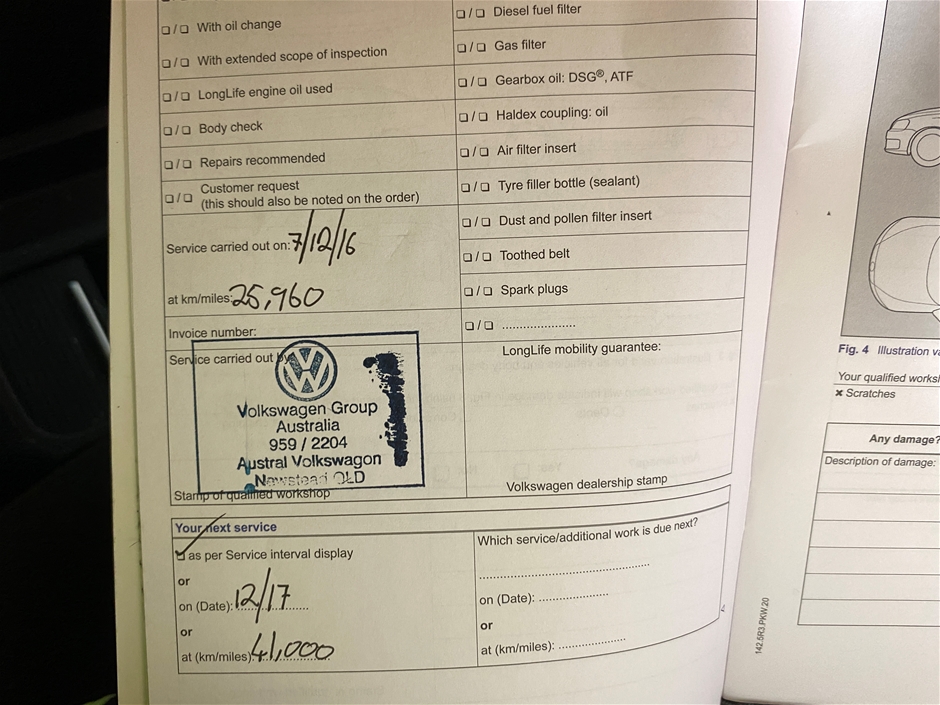 ❏ / ❏ With oil change
❏ / ❏ With extended scope of inspection
❏ / ❏ LongLife engine oil used
❏ / ❏ Body check
❏ / ❏ Repairs recommended
❏ / ❏ Customer request
(this should also be noted on the order)
Service carried out on: 7/12/16
at km/miles: 25,960
Invoice number:
Service carried out by:
Volkswagen Group
Australia
959 / 2204
Austral Volkswagon
Newstead QLD
Stamp of qualified workshop
❏ / ❏ Diesel fuel filter
❏ / ❏ Gas filter
❏ / ❏ Gearbox oil: DSG®, ATF
❏ / ❏ Haldex coupling: oil
❏ / ❏ Air filter insert
❏ / ❏ Tyre filler bottle (sealant)
❏ / ❏ Dust and pollen filter insert
❏ / ❏ Toothed belt
❏ / ❏ Spark plugs
❏ / ❏ .....................
LongLife mobility guarantee:
Volkswagen dealership stamp
Your next service
as per Service interval display
or
on (Date): 12/17
or
at (km/miles): 41,000
Which service/additional work is due next?
..................................................
on (Date): ....................
or
at (km/miles): ....................
142.5R3.PKW.20
Fig. 4 Illustration
Your qualified
✖ Scratches
Any damage?
Description of damage: